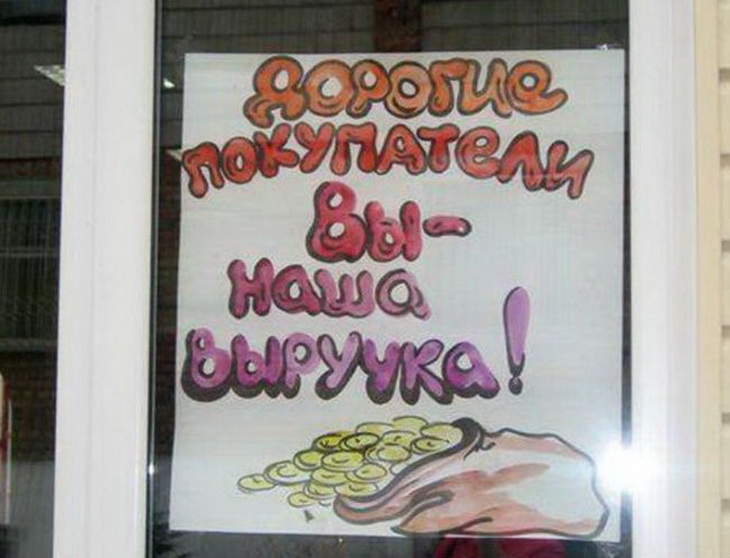 Дорогие
покупатели
Вы-
наша
выручка!